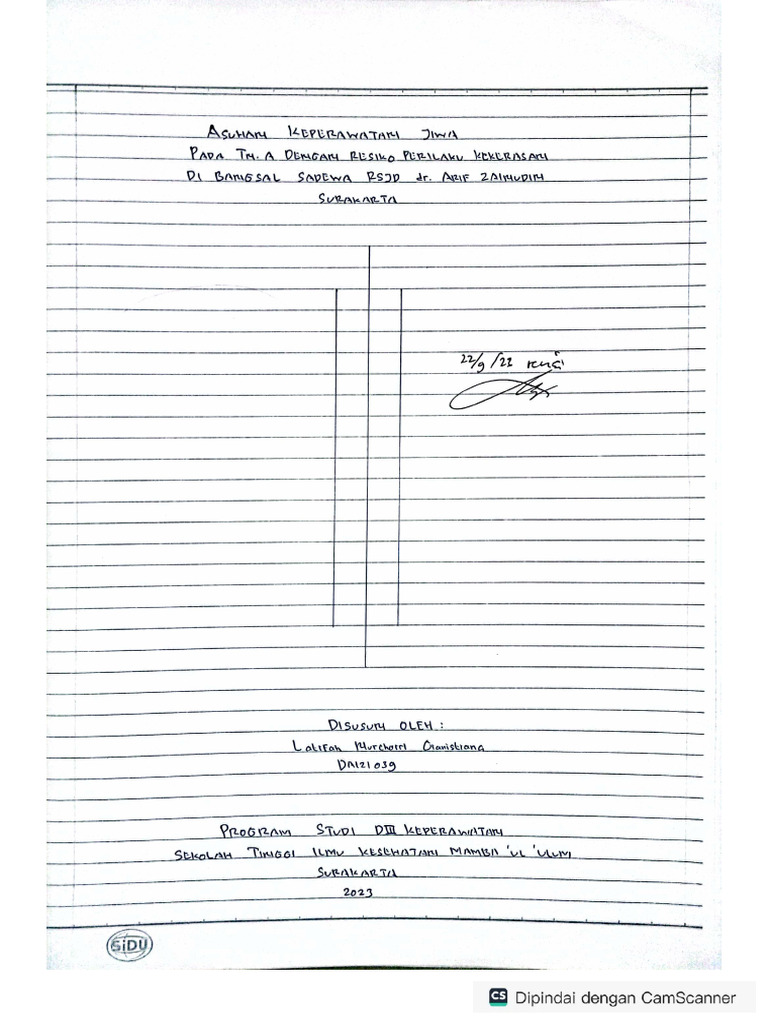 ASUHAN KEPERAWATAN JIWA
PADA TN. A DENGAN RESIKO PERILAKU KEKERASAN
DI BANGSAL SADEWA RSJD dr. ARIF ZAINUDIN
SURAKARTA
22/9/22
DISUSUN OLEH :
Latifah Nurchoiri
DA121039
PROGRAM STUDI DIII KEPERAWATAN
SEKOLAH TINGGI ILMU KESEHATAN MAMBA 'UL 'ULUM
SURAKARTA
2023
SiDU
CS Dipindai dengan CamScanner